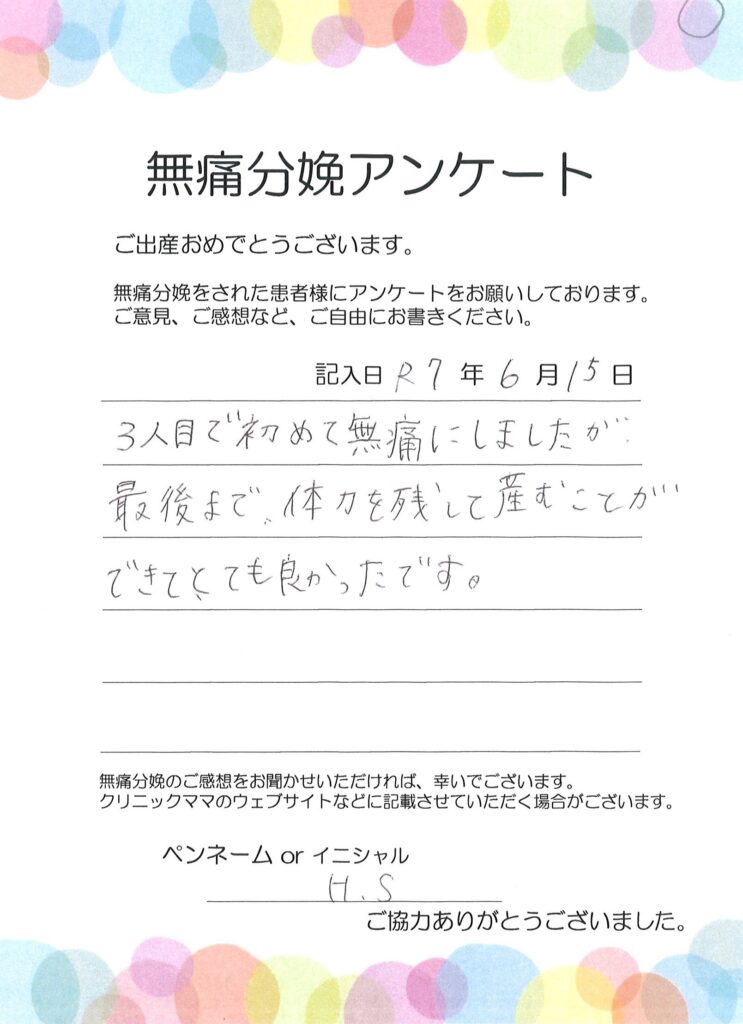 無痛分娩アンケート
ご出産おめでとうございます。
無痛分娩をされた患者様にアンケートをお願いしております。
ご意見、ご感想など、ご自由にお書きください。
記入日 R7 年 6 月 15 日
3人目で初めて無痛にしましたが
最後まで、体力を残して産むことが
できてとても良かったです。
無痛分娩のご感想をお聞かせいただければ、幸いでございます。
クリニックママのウェブサイトなどに記載させていただく場合がございます。
ペンネーム or イニシャル
H.S
ご協力ありがとうございました。